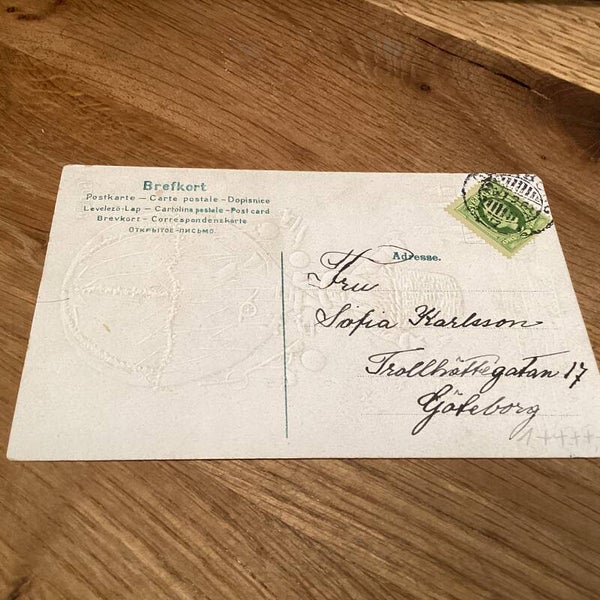 Brefkort
Postkarte – Carte postale – Dopisnice
Levelező-Lap – Cartolina postale – Post card
Brevkort – Correspondenskarte
ОТКРЫТОЕ-ПИСЬМО.
Adresse.
Fru
Sofia Karlsson
Trollhättegatan 17
Göteborg